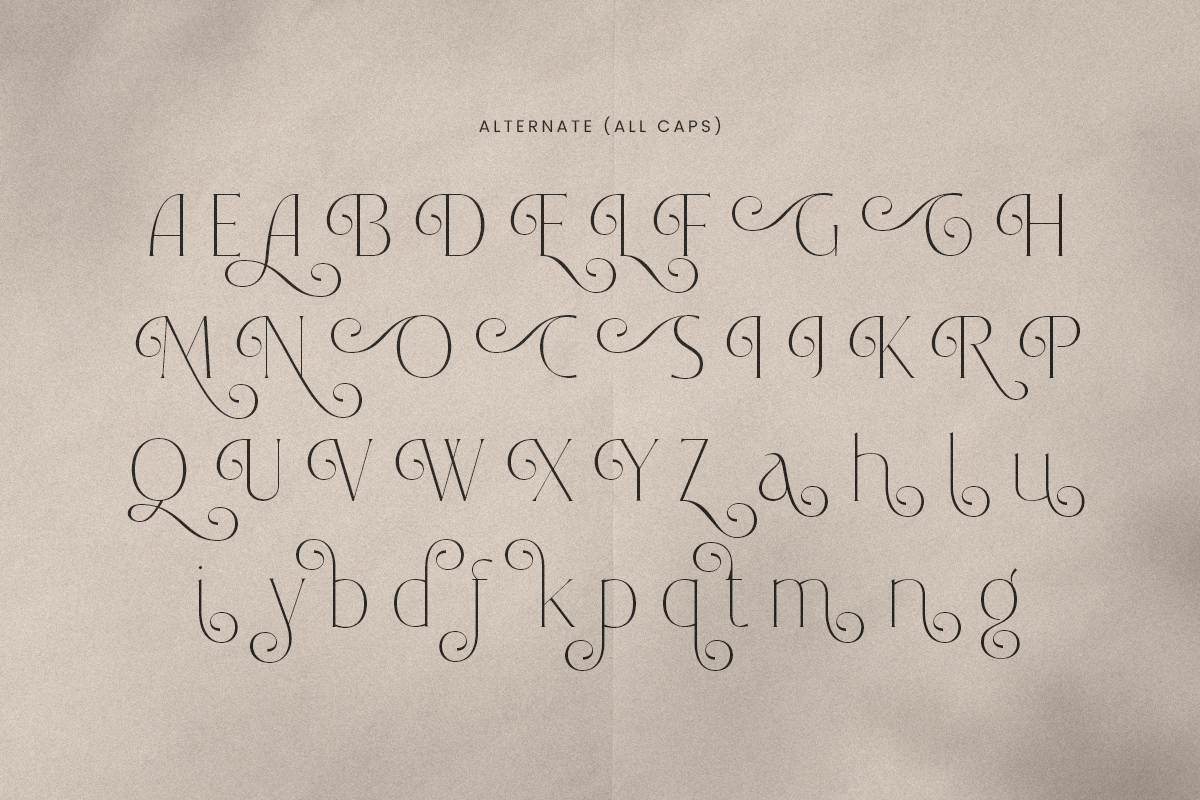 ALTERNATE (ALL CAPS)
A E A B D E L F G G H
M N O C S I J K R P
Q U V W X Y Z a h l u
i y b d f k p q t m n g